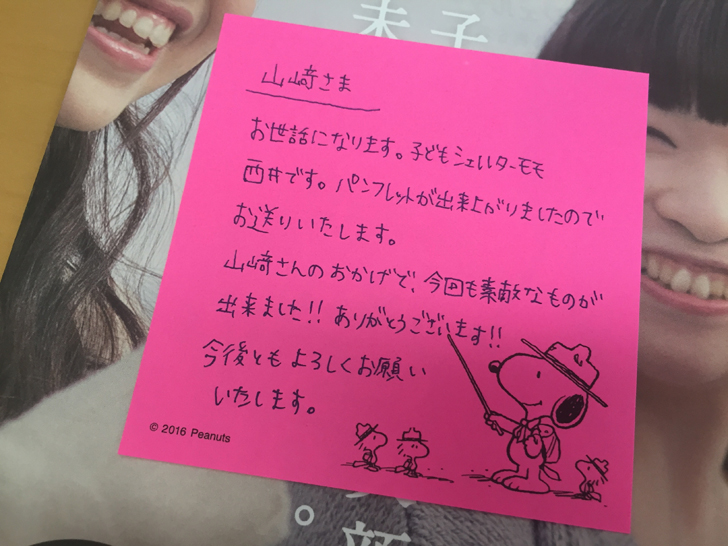 子
未
山﨑さま
お世話になります。子どもシェルターモモ
西井です。パンフレットが出来上がりましたので
お送りいたします。
山﨑さんのおかげで、今回も素敵なものが
出来ました!!ありがとうございます!!
今後ともよろしくお願い
いたします。
© 2016 Peanuts
。